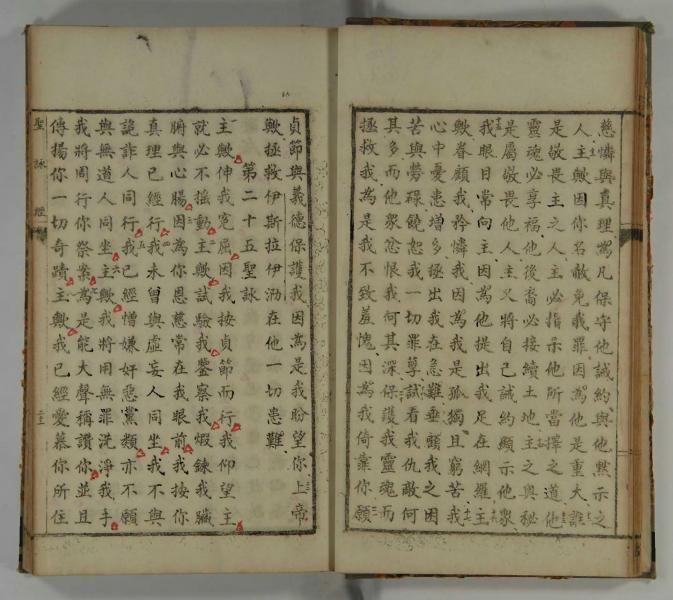 慈憐與真理爲凡保守他誡約與他黙示之
人主歟因你名赦免我罪因爲他是重大誰
是敬畏主之人主必指示他所當擇之道他
靈魂必享福他後裔必接續土地主之奥秘
是屬敬畏他人主又將自己誡約顯示他衆
我眼目常向主因爲他提出我足在網羅主
歟眷顧我矜憐我因爲我是孤獨且窮苦我
心中憂患增多拯出我在急難垂顧我之困
苦與勞碌饒恕我一切罪孽試看我仇敵何
其多而他衆忿恨我何其深保護我靈魂而
拯救我爲是我不致羞愧因爲我倚靠你願
貞節與義德保護我因爲是我盼望你上帝
歟拯救伊斯拉伊泐在他一切患難
第二十五聖詠
主歟伸我冤屈因我按貞節而行我仰望主
就必不搖動主歟試驗我鑒察我煆鍊我臟
腑與心腸因爲你恩慈常在我眼前我按你
真理已經行我未曾與虛妄人同坐我不與
詭詐人同行我已經憎嫌奸惡黨類亦不願
與無道人同坐主歟我將用無罪洗淨我手
我將周行你祭案爲是能大聲稱讚你並且
傳揚你一切奇蹟主歟我已經愛慕你所住
聖詠經